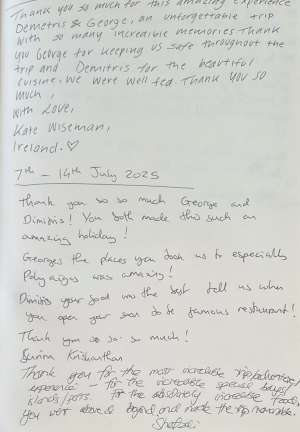 Thank you so much for this amazing experience
Demetris & George, an unforgettable trip
with so many incredible memories Thank
you George for keeping us safe throughout the
trip and Demitris for the beautiful
cuisine, we were well fed. Thank you so
much,
with Love,
Kate Wiseman,
Ireland. ♡
7th - 14th July 2025
Thank you so so much George and
Dimitris! You both made this such an
amazing holiday!
Georges the places you took us to especially
Polyaigos was amazing!
Dimitris your food was the best tell us when
you open your soon to be famous restaurant!
Thank you so so so much!
Krishanthan
Thank you for the most incredible trip/adventure/
experience - for the incredible special bays/
islands/ports. For the absolutely incredible food,
you went above & beyond and made the trip memorable.